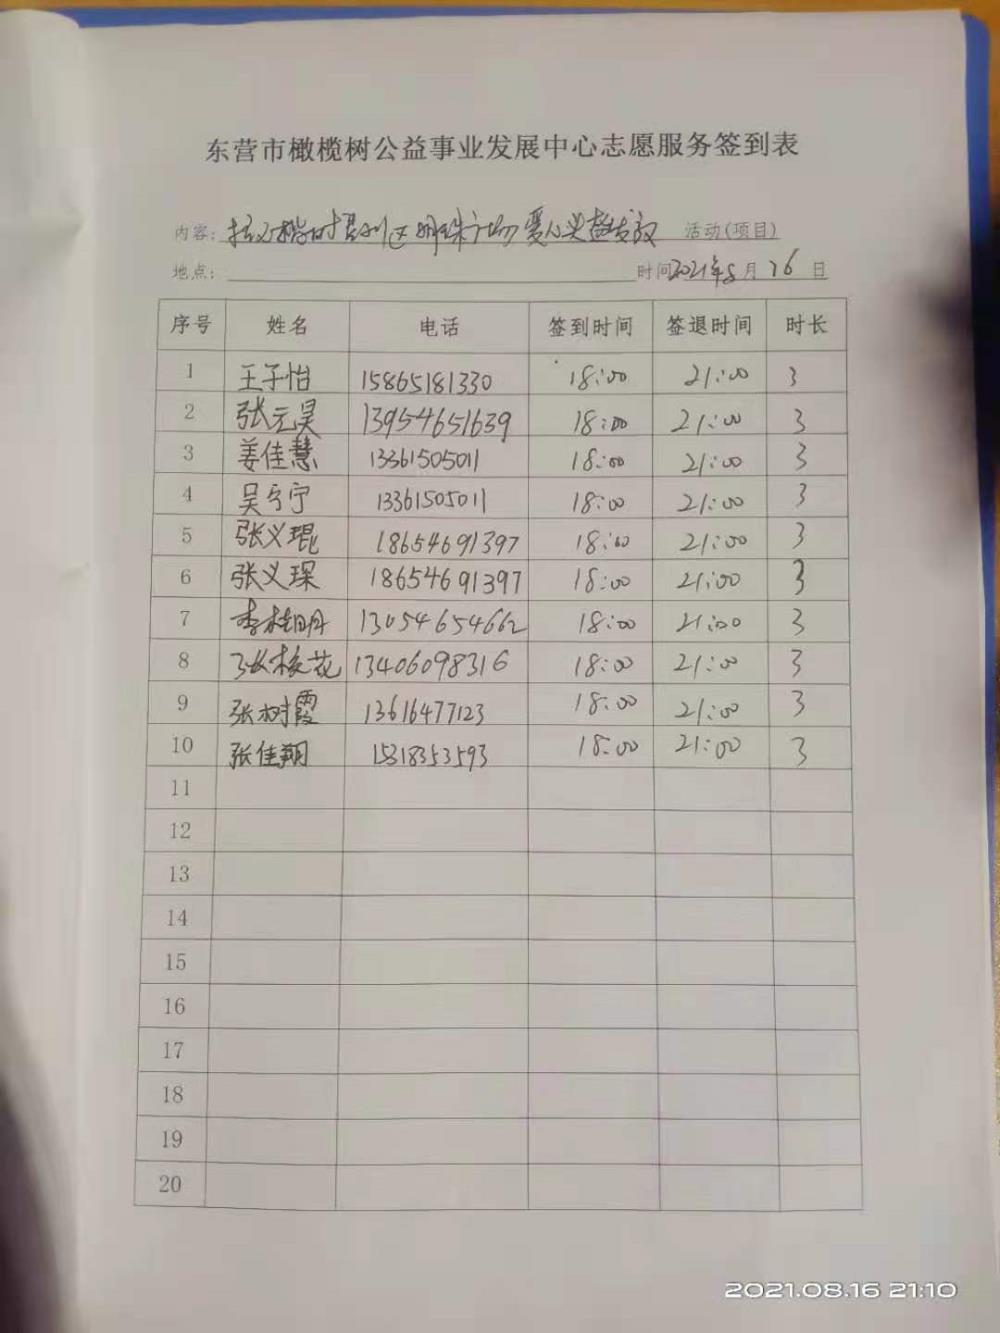 东营市橄榄树公益事业发展中心志愿服务签到表
内容: 区明珠广场爱心义 活动(项目)
地点: 时间2021年8月16日
序号 姓名 电话 签到时间 签退时间 时长
1 王子怡 15865181330 18:00 21:00 3
2 张元昊 13954651639 18:00 21:00 3
3 姜佳慧 13361505011 18:00 21:00 3
4 吴宁宁 13361505011 18:00 21:00 3
5 张义琨 18654691397 18:00 21:00 3
6 张义琛 18654691397 18:00 21:00 3
7 李桂明 13054654662 18:00 21:00 3
8 张枝花 13406098316 18:00 21:00 3
9 张树霞 13616477123 18:00 21:00 3
10 张佳翔 15318353593 18:00 21:00 3
11
12
13
14
15
16
17
18
19
20
2021.08.16 21:10